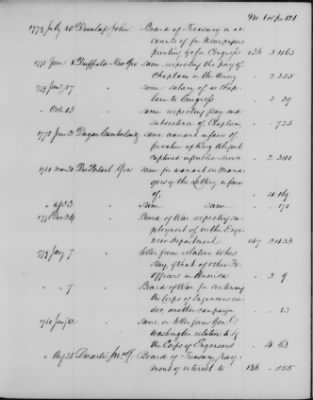 1779 July 20 Dunlap John Board of Treasury in ac-
counts of for Newspapers
printing &c for Congress 136 3 1165
1776 Jan 8 Duffield Rev Geo same respecting the pay of
Chaplain in the Army - 2 225
1779 Jany 27 same salary as Chap-
lain to Congress - 3 39
" Oct 13 same respecting pay and
subsistence of Chaplains - 725
1778 June 3 Dugan Cumberland same warrant in favor of
captured - 2 341
1780 Mar 30 same for warrant on Mana-
gers of the Lottery in favor
of - 4 169
" Apl 3 same same - 171
1778 Dec 24 Board of War respecting em-
ployment of in the Engi-
neer Department 147 2 433
1779 Jany 7 letter from relative to his
Pay, & that of other Fr.
officers in America - 3 9
" " 7 Board of War for continuing
the Corps of Engineers un-
der, another campaign - 13
1780 Jany 12 same, on letter from Genl
Washington relative to &
the Corps of Engineers - 4 63
" Aug 28 Board of Treasury, pay-
ment of interest to 136 - 555